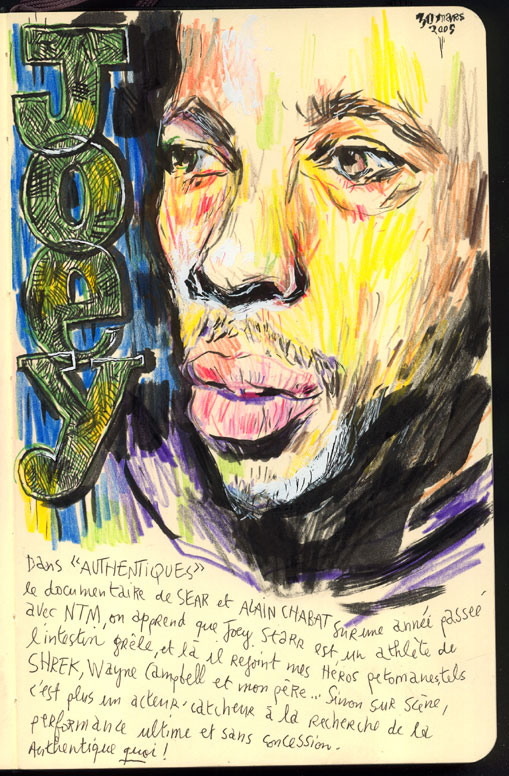 30 mars
2005
Joey
Dans "AUTHENTIQUES"
le documentaire de SEAR et ALAIN CHABAT sur une année passée
avec NTM, on apprend que Joey Starr est un athlète de
l'intestin grêle, et là il rejoint mes Heros petomanesques
SHREK, Wayne Campbell et mon père... Sinon sur scène,
c'est plus un acteur-catcheur à la recherche de la
performance ultime et sans concession.
Authentique quoi !